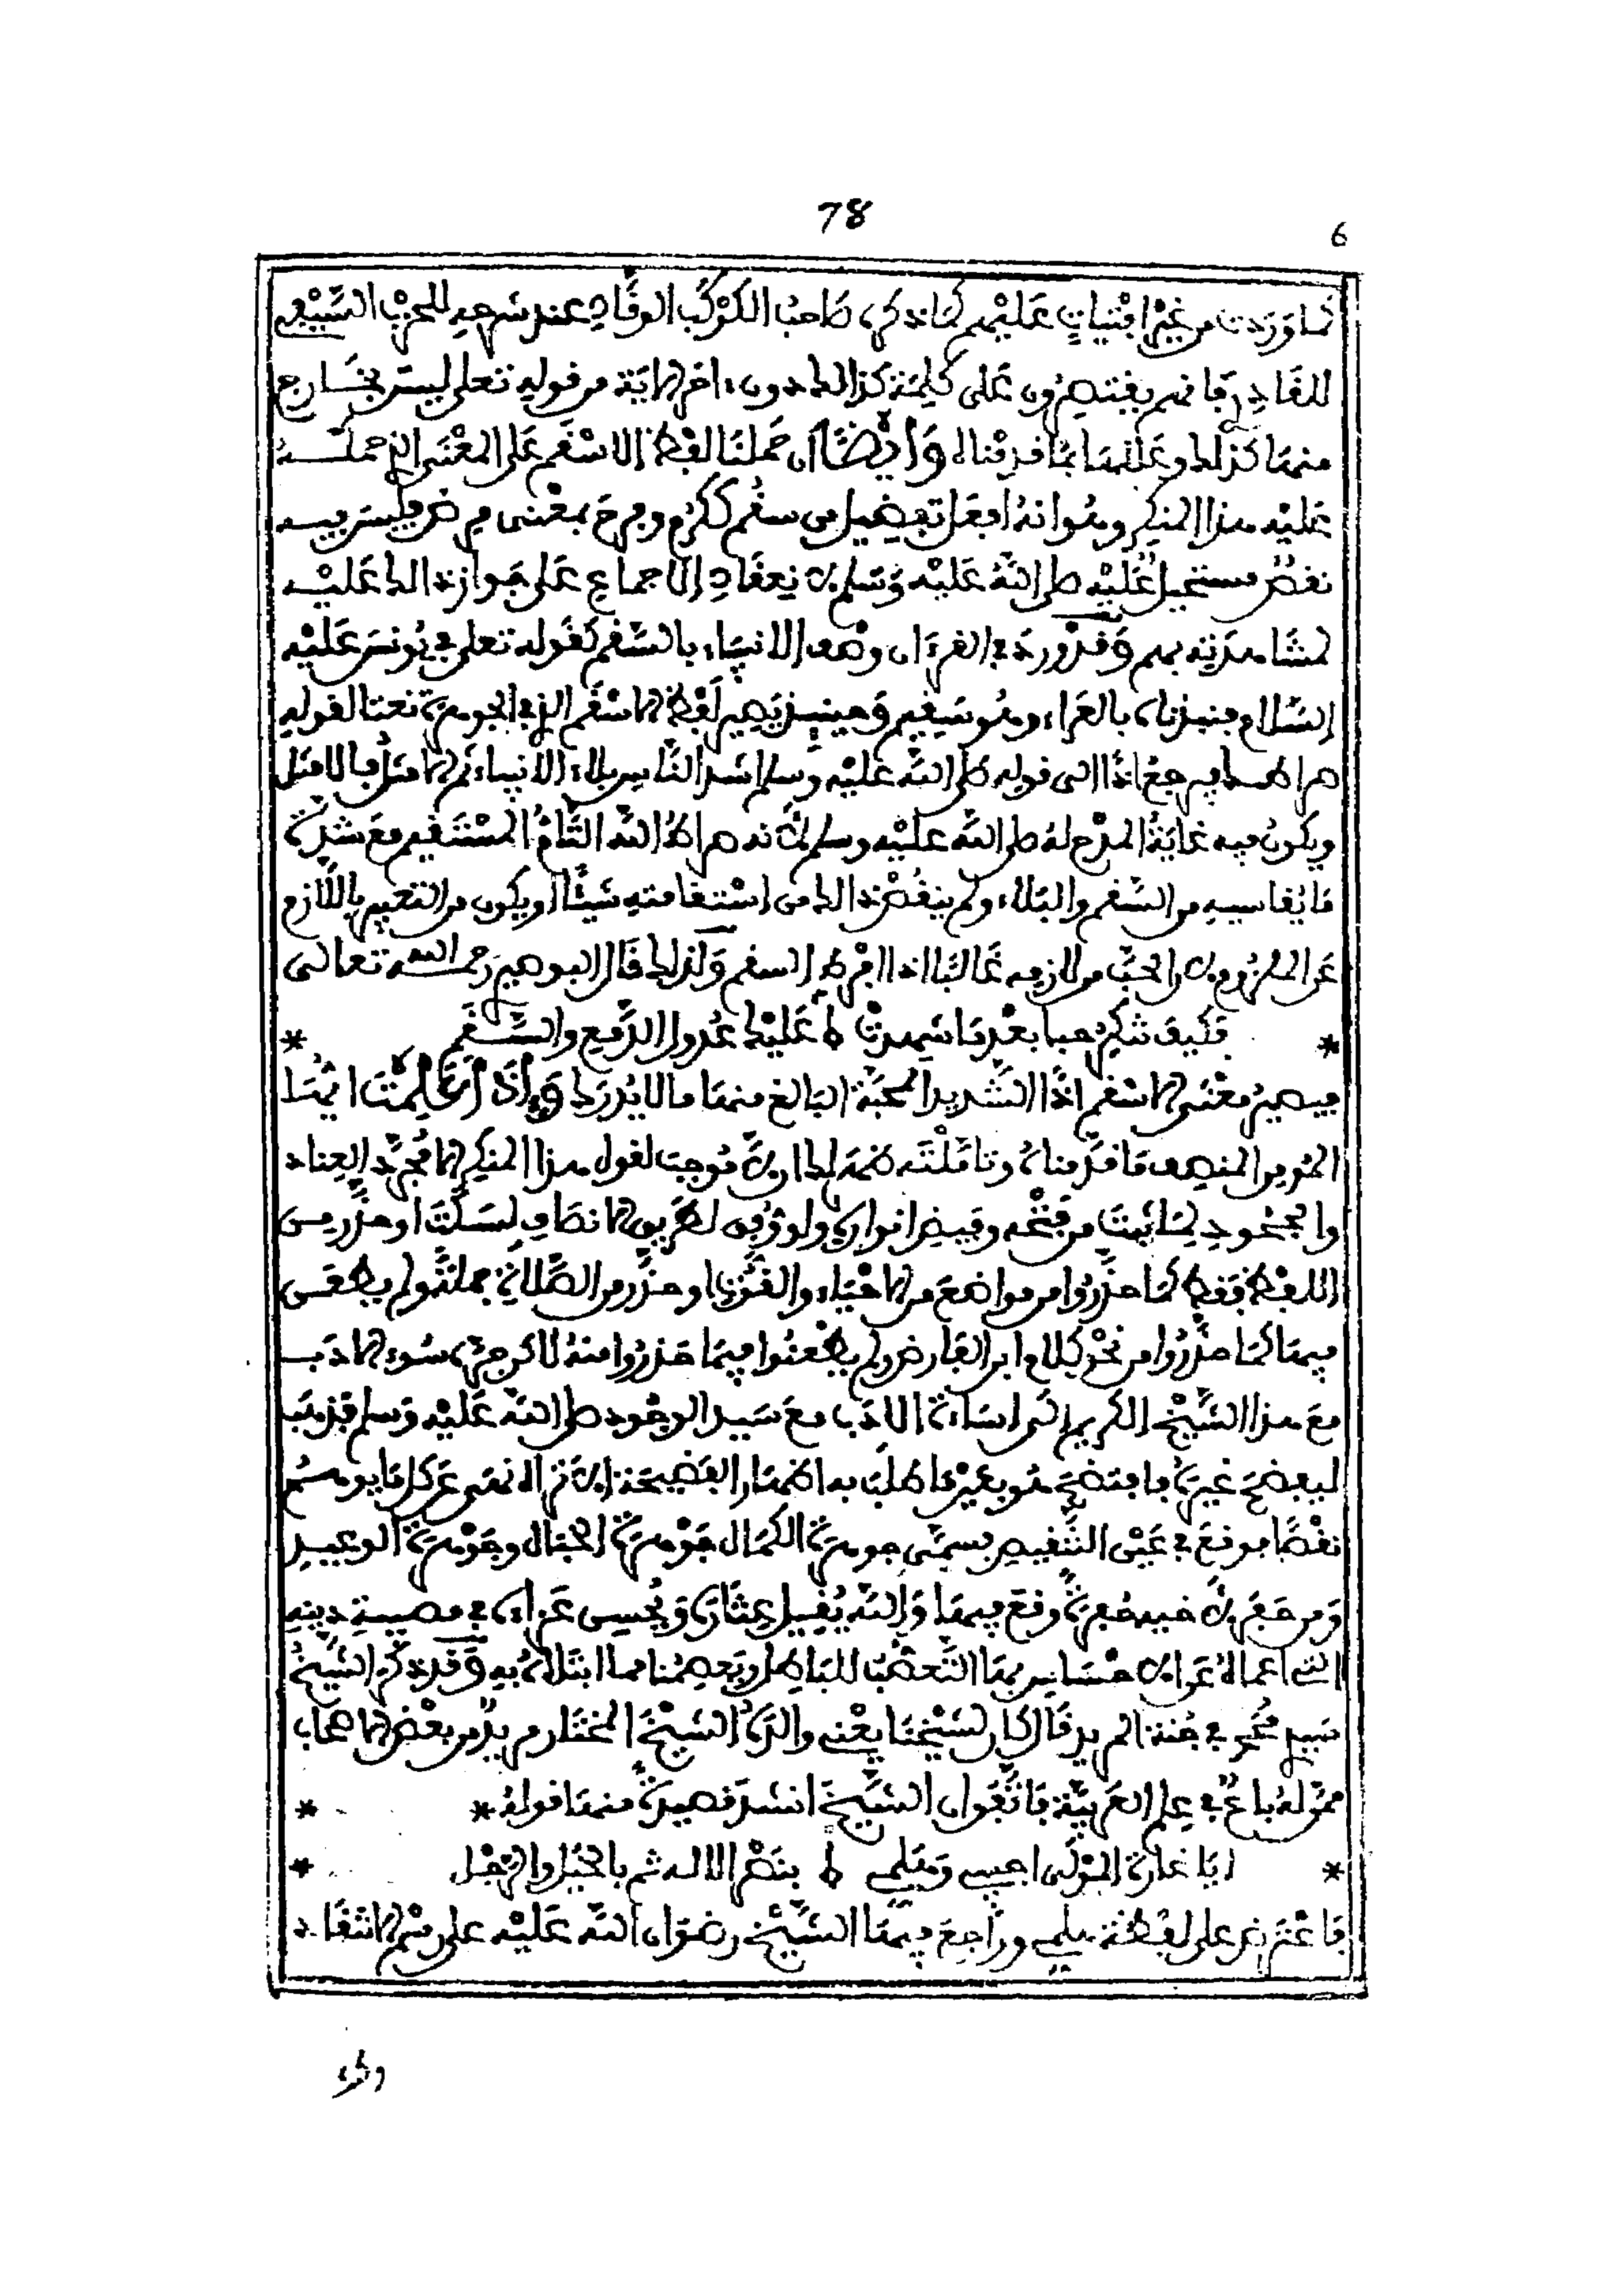 78
6
كما وردت من غير افتيات عليهم كما ذكره صاحب الكوكب الوقاد عند شرحه للحزب السيفي
للقادر فانهم يقتصرون على كلمة كذلك دون اخر الاية من قوله تعلى ليس بخارج
منها كذلك وعلمها بما قدمناه وأيضا ان حملنا لفظ الاسقم على المعنى الذي حمله
عليه هذا المنكر وهو انه افعل تفضيل من سقم ككرم وفرح بمعنى مرض فليس فيه
نقص مستحيل عليه صلى الله عليه وسلم لانعقاد الاجماع على جواز ذلك عليه
لمشاهدته بهم وقد ورد في القرءان وصف الانبياء بالسقم كقوله تعلى في يونس عليه
السلام فنبذناه بالعراء وهو سقيم وحينئذ يصير لفظ الاسقم الذي في الجوهرة نعتا لقوله
صراطك فيرجع اذا الى قوله صلى الله عليه وسلم اشد الناس بلاء الانبياء ثم الامثل فالامثل
ويكون فيه غاية المدح له صلى الله عليه وسلم لأنه صراط الله التام المستقيم مع شدة
ما يقاسيه من السقم والبلاء ولم ينقص ذلك من استقامته شيئا او يكون من التعبير باللازم
عن الملزوم لان الحب من لازمه غالبا اذا افرط السقم ولذلك قال البوصيري رحمه الله تعالى
* فكيف تنكر حبا بعد ما شهدت ط به عليك عدول الدمع والسقم *
فيصير معنى الاسقم اذا الشديد المحبة البالغ منها ما لا يدرك وإذا علمت ايها
المريد المنصف ما قدمناه وتاملته ظهر لك ان لا موجب لقول هذا المنكر الا مجرد العناد
والجحود لما ثبت من فتحه وفيض انواره ولو وفق لطريق الانصاف لسكت او حذر من
اللفظ فقط كما حذروا من مواضع من الاحياء والقوت او حذر من الصلاة جملة ولم يطعن
فيها كما حذروا من نحو كلام ابن الفارض ولم يطعنوا فيما حذروا منه لاكن جره سوء الادب
مع هذا الشيخ الكريم الى اساءة الادب مع سيد الوجود صلى الله عليه وسلم فذهب
ليفضح غيره فافتضح هو بغير ما طلب به اظهار الفضيحة لانه نهى عن كل ما يوهم
نقصا فوقع في عين التنقيص بسمى جوهرة الكمال جوهرة الخبال وجوهرة الوعيد
ومن حفر لاخيه حفرة وقع فيها والله يقيل عثاره ويحسن عزاءه في مصيبة دينه
التي اعماله عوان خساير بها التعصب للباطل ويعصمنا مما ابتلاه به وقد ذكر الشيخ
سيدي محمد في جنة المريد قال كان لشيخنا يعني والده الشيخ المختار مريد من بعض الاصحاب
ممن له باع في علم العربية فاتفق ان الشيخ انشد قصيدة منها قوله *
* ايا غارة المولى اجيبي وهلمي ط بنصر الاله ثم بالخيل والرجل *
فاعترض على لفظة هلمي وراجع فيها الشيخ رضوان الله عليه على رسم الانتقاد